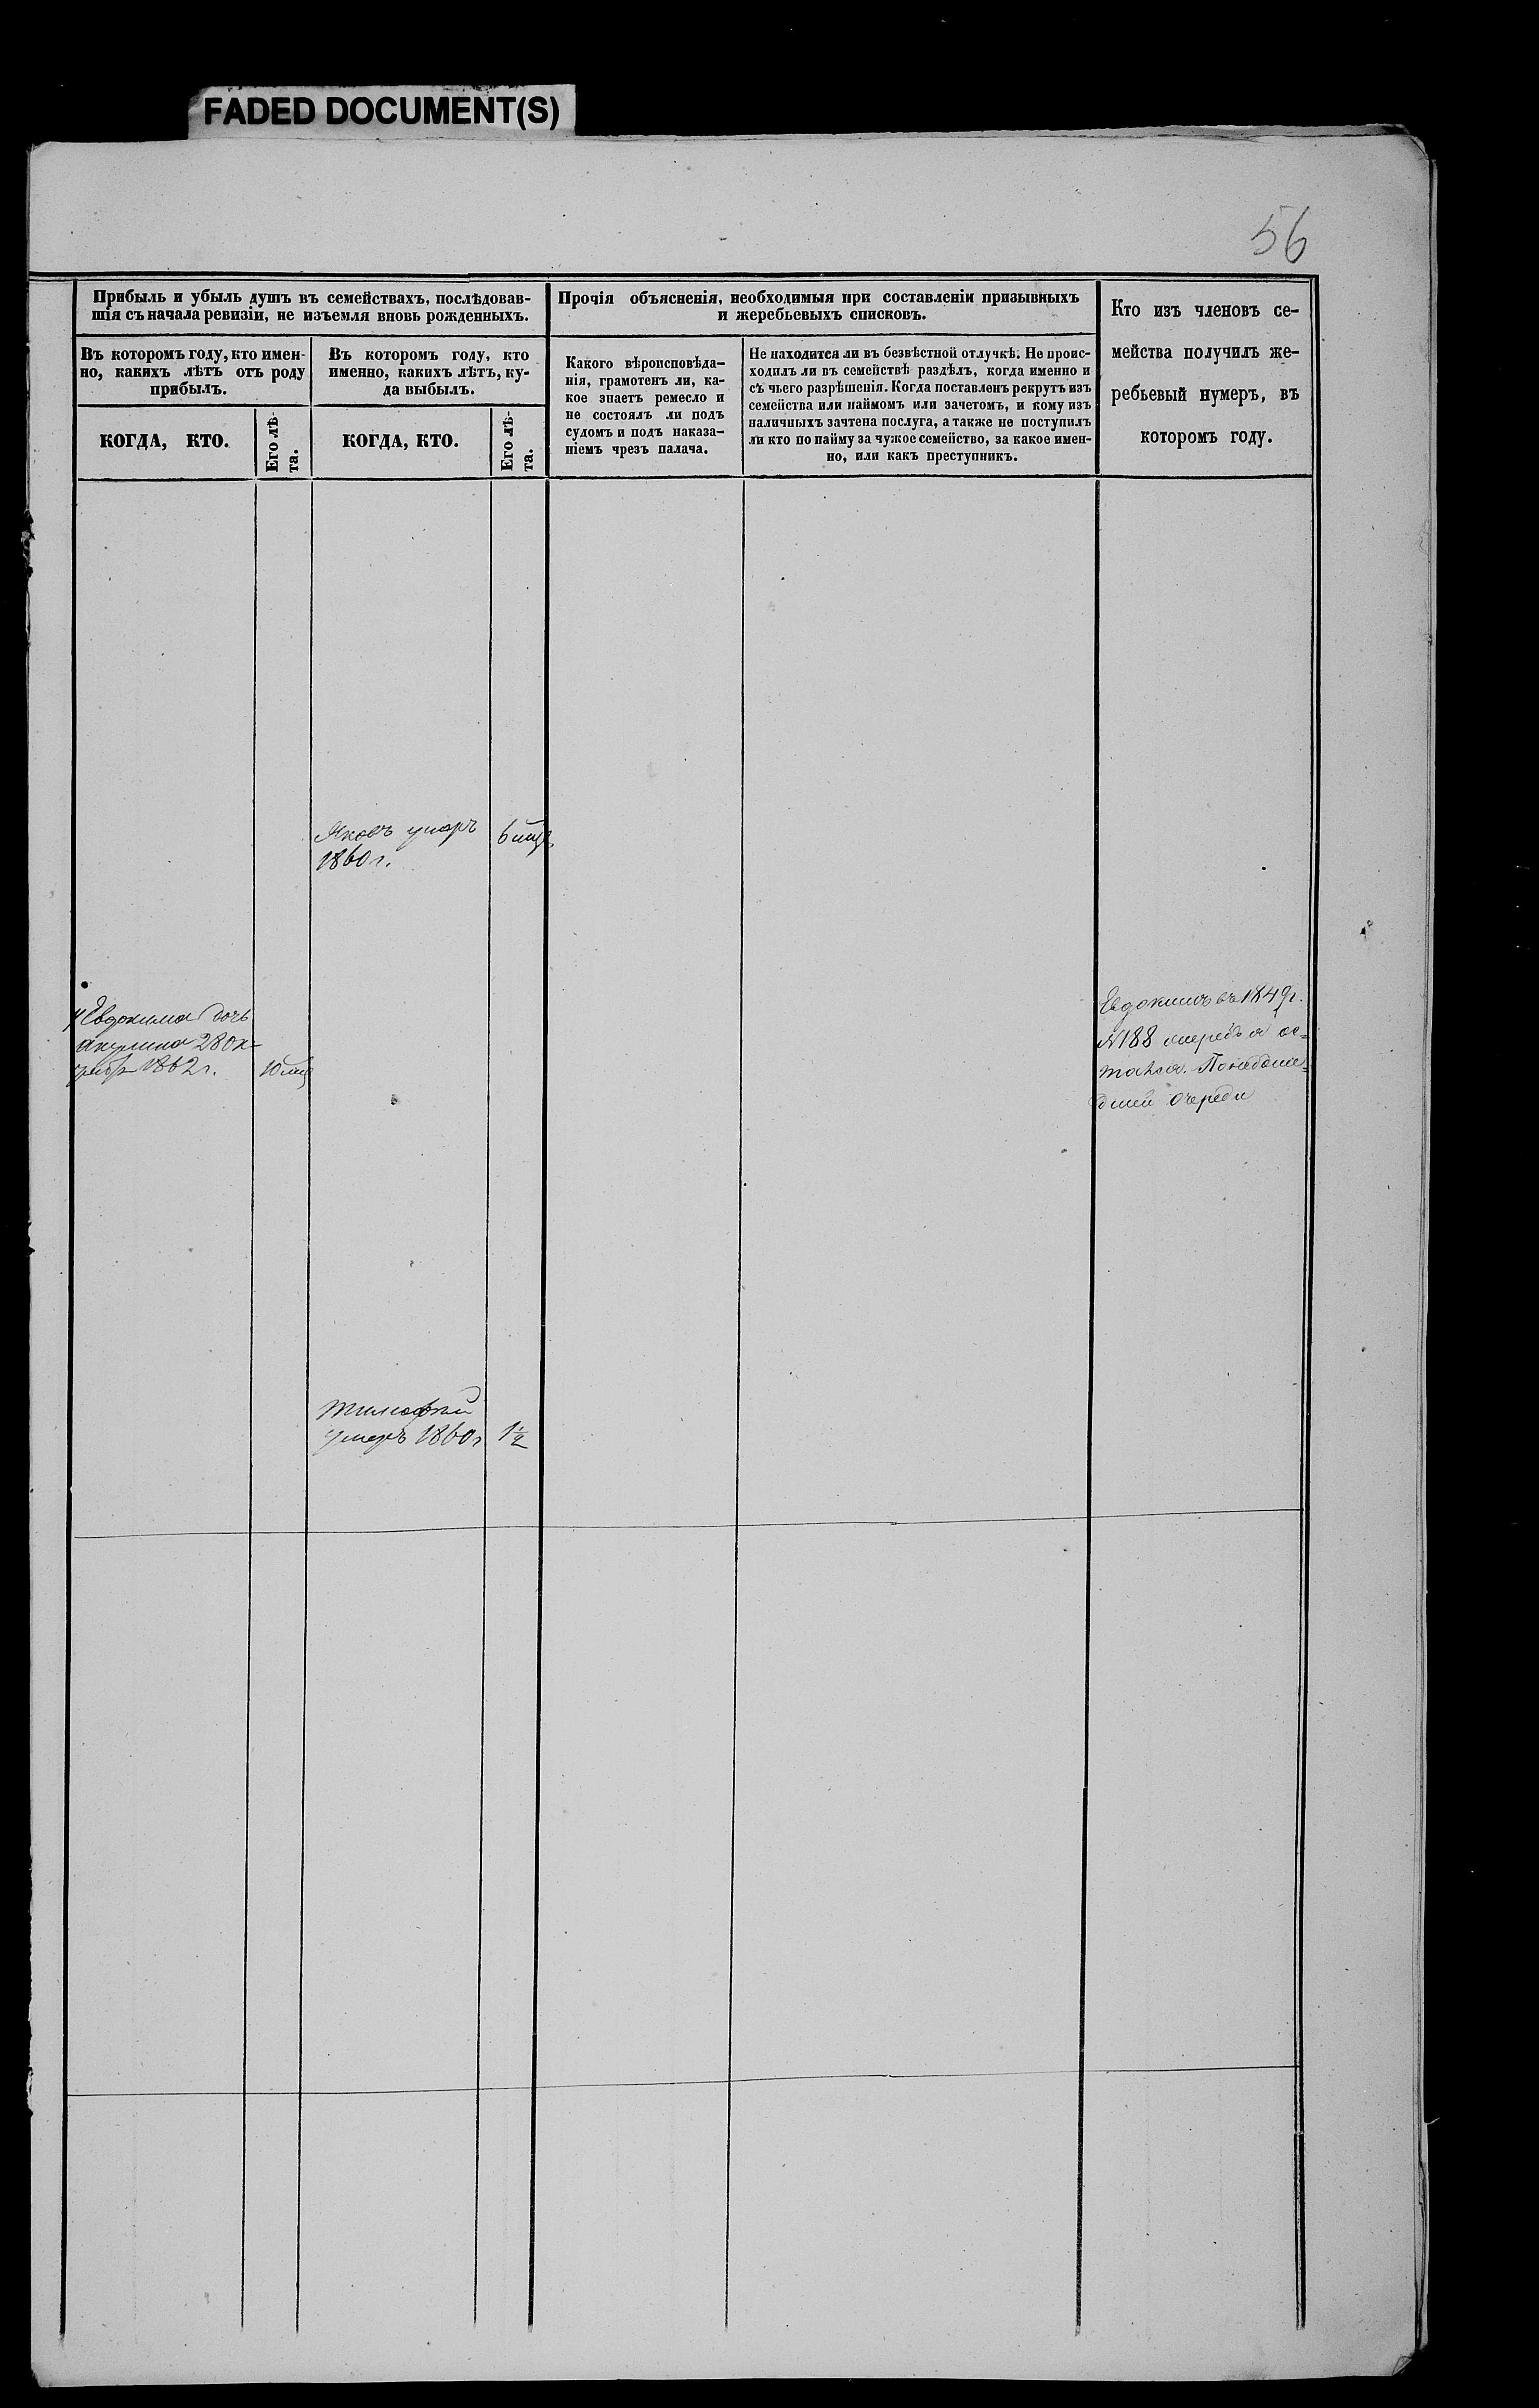 FADED DOCUMENT(S)
56
Прибыль и убыль душъ въ семействахъ, послѣдовав-
шія съ начала ревизіи, не изъемля вновь рожденныхъ.
Прочія объясненія, необходимыя при составленіи призывныхъ
и жеребьевыхъ списковъ.
Кто изъ членовъ се-
мейства получилъ же-
ребьевый нумеръ, въ
которомъ году.
Въ которомъ году, кто имен-
но, какихъ лѣтъ отъ роду
прибылъ.
Въ которомъ году, кто
именно, какихъ лѣтъ, ку-
да выбылъ.
Какого вѣроисповѣда-
нія, грамотенъ ли, ка-
кое знаетъ ремесло и
не состоялъ ли подъ
судомъ и подъ наказа-
ніемъ чрезъ палача.
Не находится ли въ безвѣстной отлучкѣ. Не проис-
ходилъ ли въ семействѣ раздѣлъ, когда именно и
съ чьего разрѣшенія. Когда поставленъ рекрутъ изъ
семейства или наймомъ или зачетомъ, и кому изъ
наличныхъ зачтена послуга, а также не поступилъ
ли кто по найму за чужое семейство, за какое имен-
но, или какъ преступникъ.
КОГДА, КТО.
Его лѣ-
та.
КОГДА, КТО.
Его лѣ-
та.
Яковъ умеръ
1860 г.
6 мцъ
у Евдокима дочь
акулина 28 ок-
1862 г.
10 мц
Евдокимъ въ 1849 г.
№188 остался
дшей очереди
Тимофей
умеръ 1860 г
1½